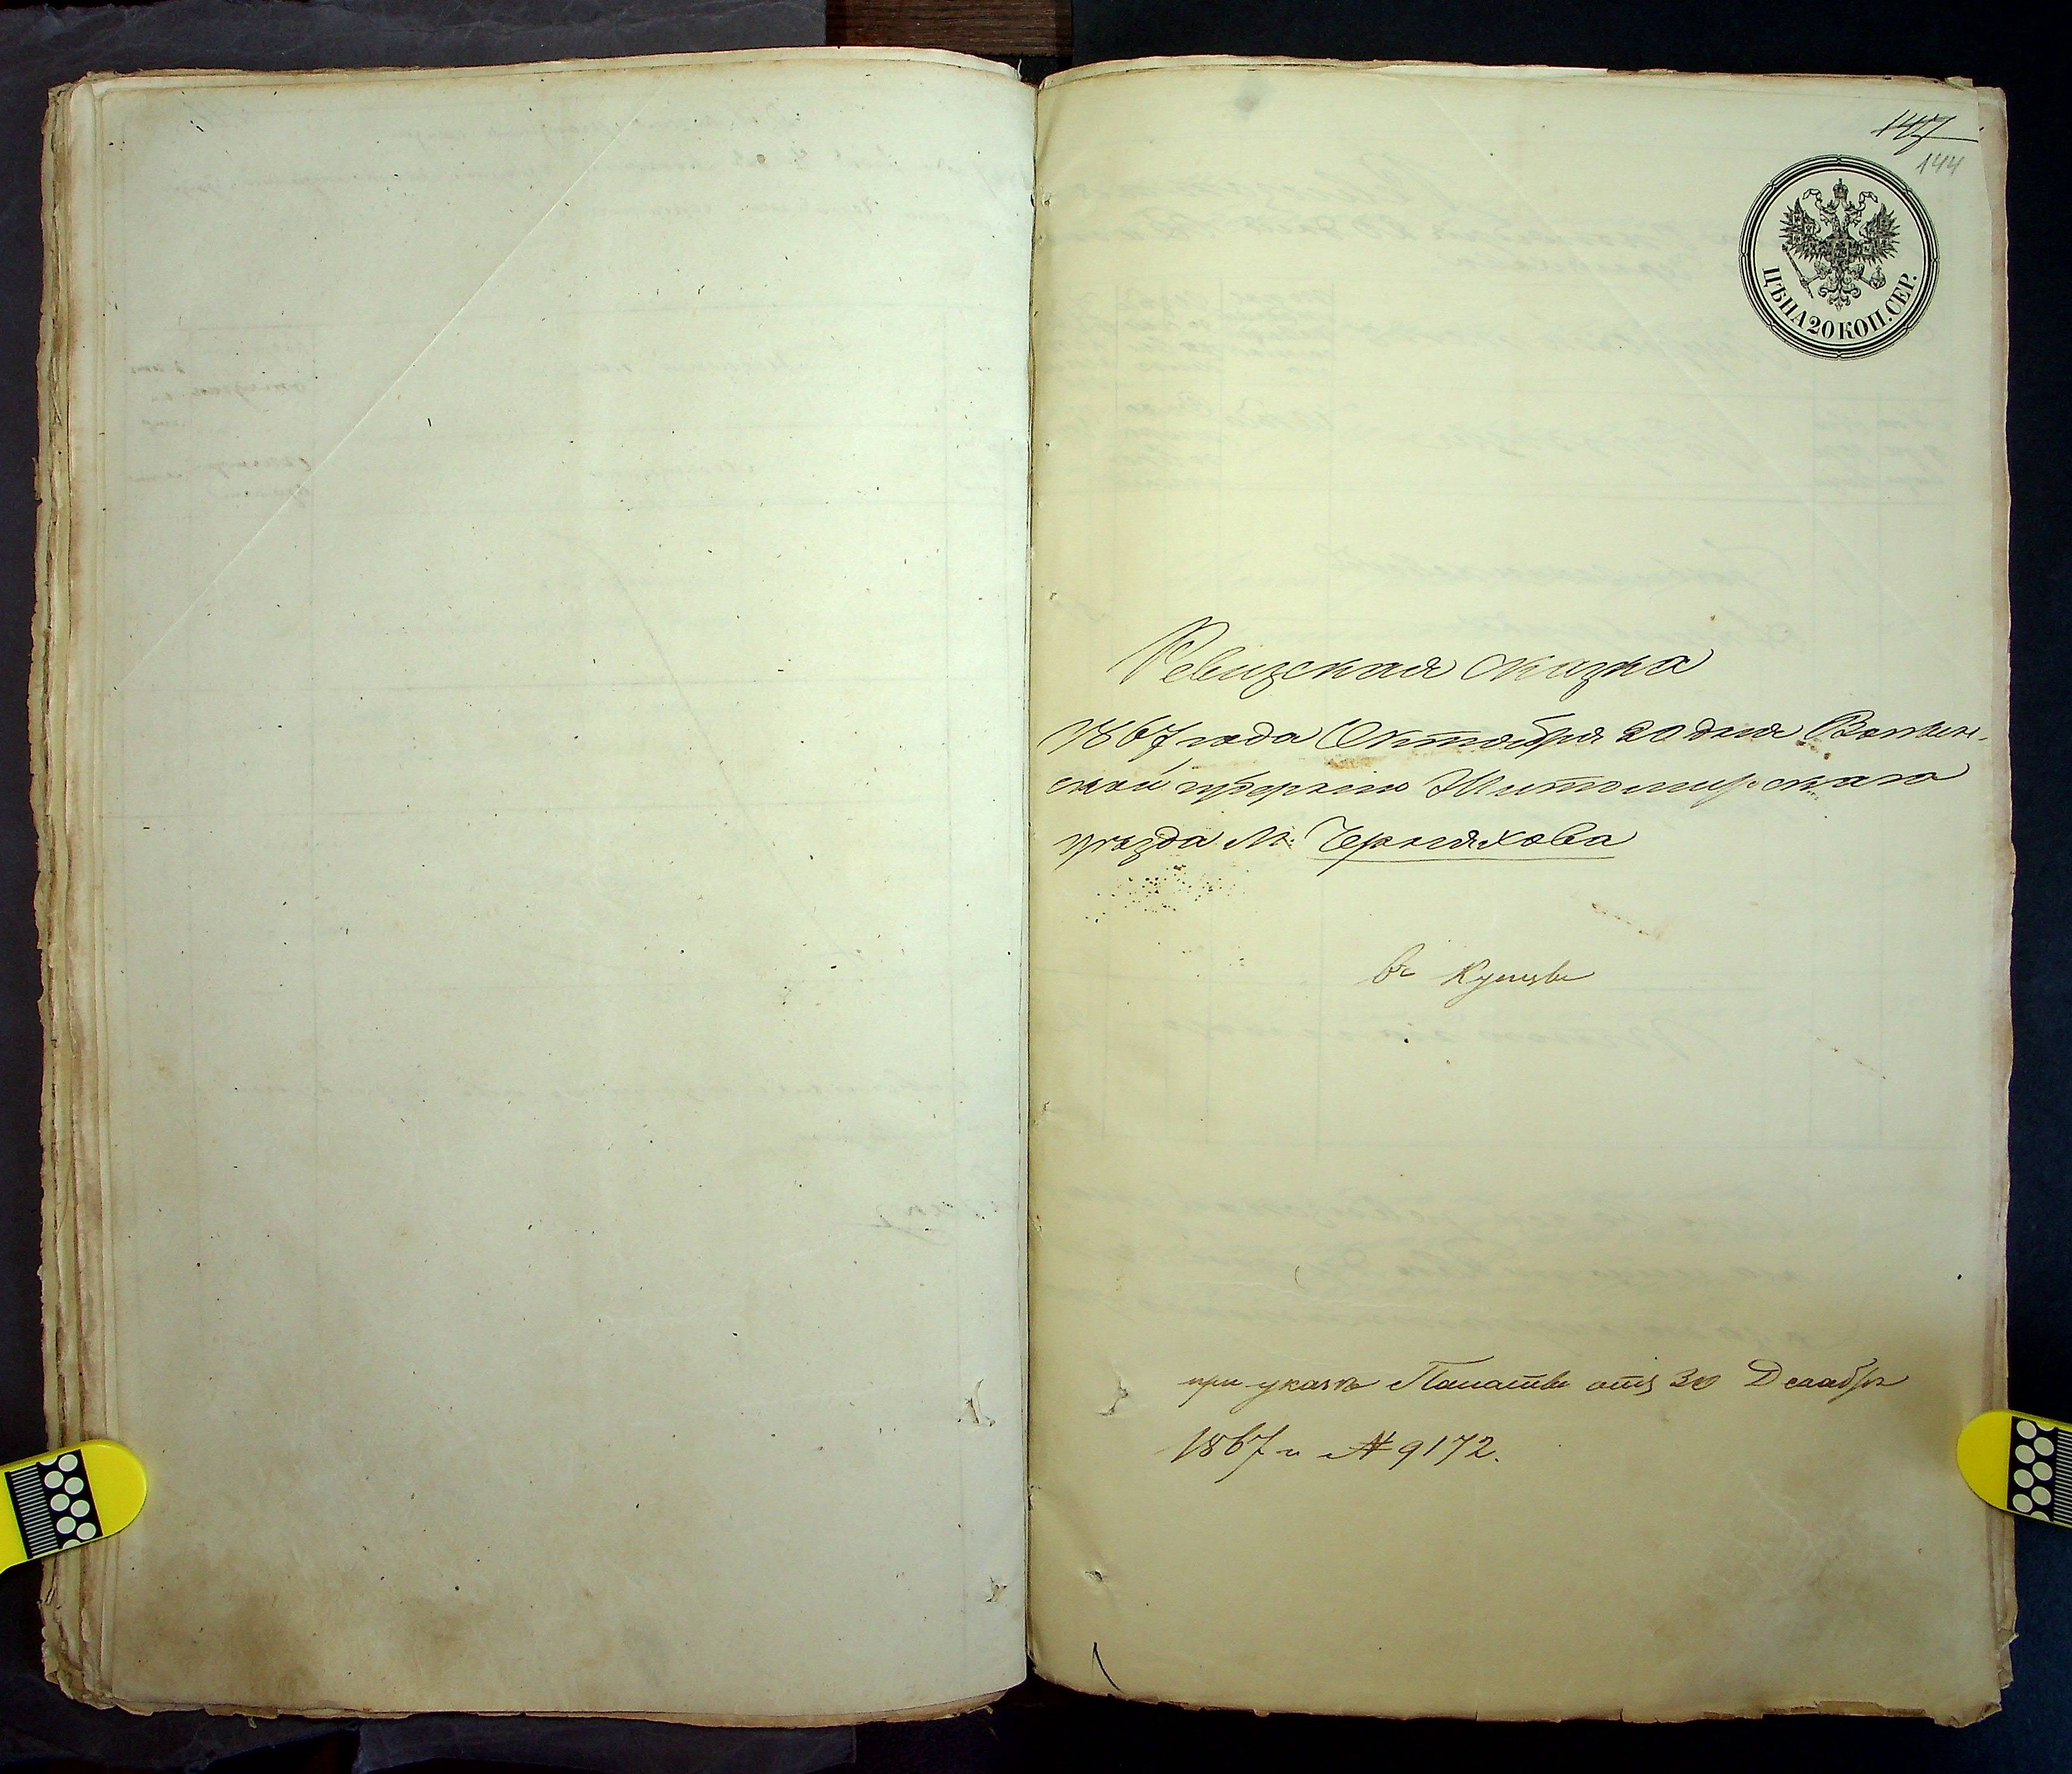 147
144
ЦѢНА 20 КОП. СЕР.
Ревизская сказка
1867 года Октября 20 дня Волын-
ской губернiи Житомирскаго
уѣзда М. Черняхова
въ Купцы
при указѣ Палаты отъ 30 Декабря
1867 г. № 9172.